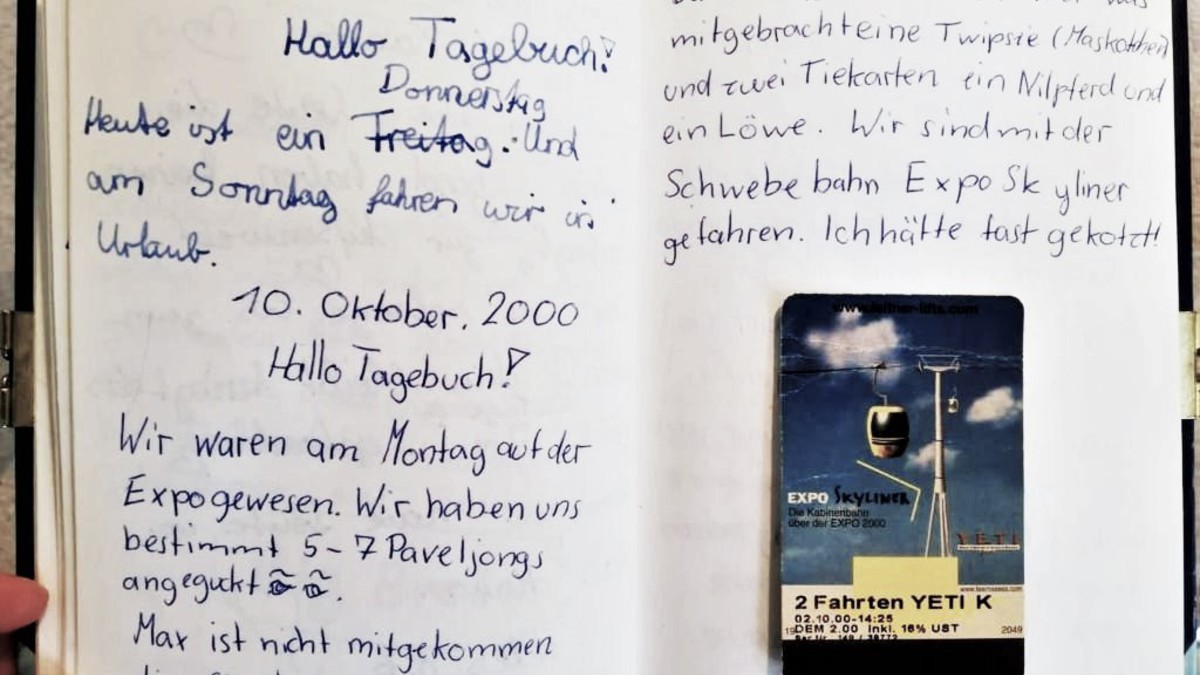 Hallo Tagebuch!
Donnerstag
Heute ist ein Freitag. Und
am Sonntag fahren wir in
Urlaub.
10. Oktober. 2000
Hallo Tagebuch!
Wir waren am Montag auf der
Expo gewesen. Wir haben uns
bestimmt 5-7 Paveljongs
angeguckt.
Max ist nicht mitgekommen
mitgebracht eine Twipsie (Maskottchen)
und zwei Tiekarten ein Nilpferd und
ein Löwe. Wir sind mit der
Schwebebahn Expo Skyliner
gefahren. Ich hätte fast gekotzt!
www.leitner-lifts.com
EXPO SKYLINER
Die Kabinenbahn
über der EXPO 2000
YETI
2 Fahrten YETI K
02.10.00-14:25
DEM 2.00 inkl. 16% UST
2049